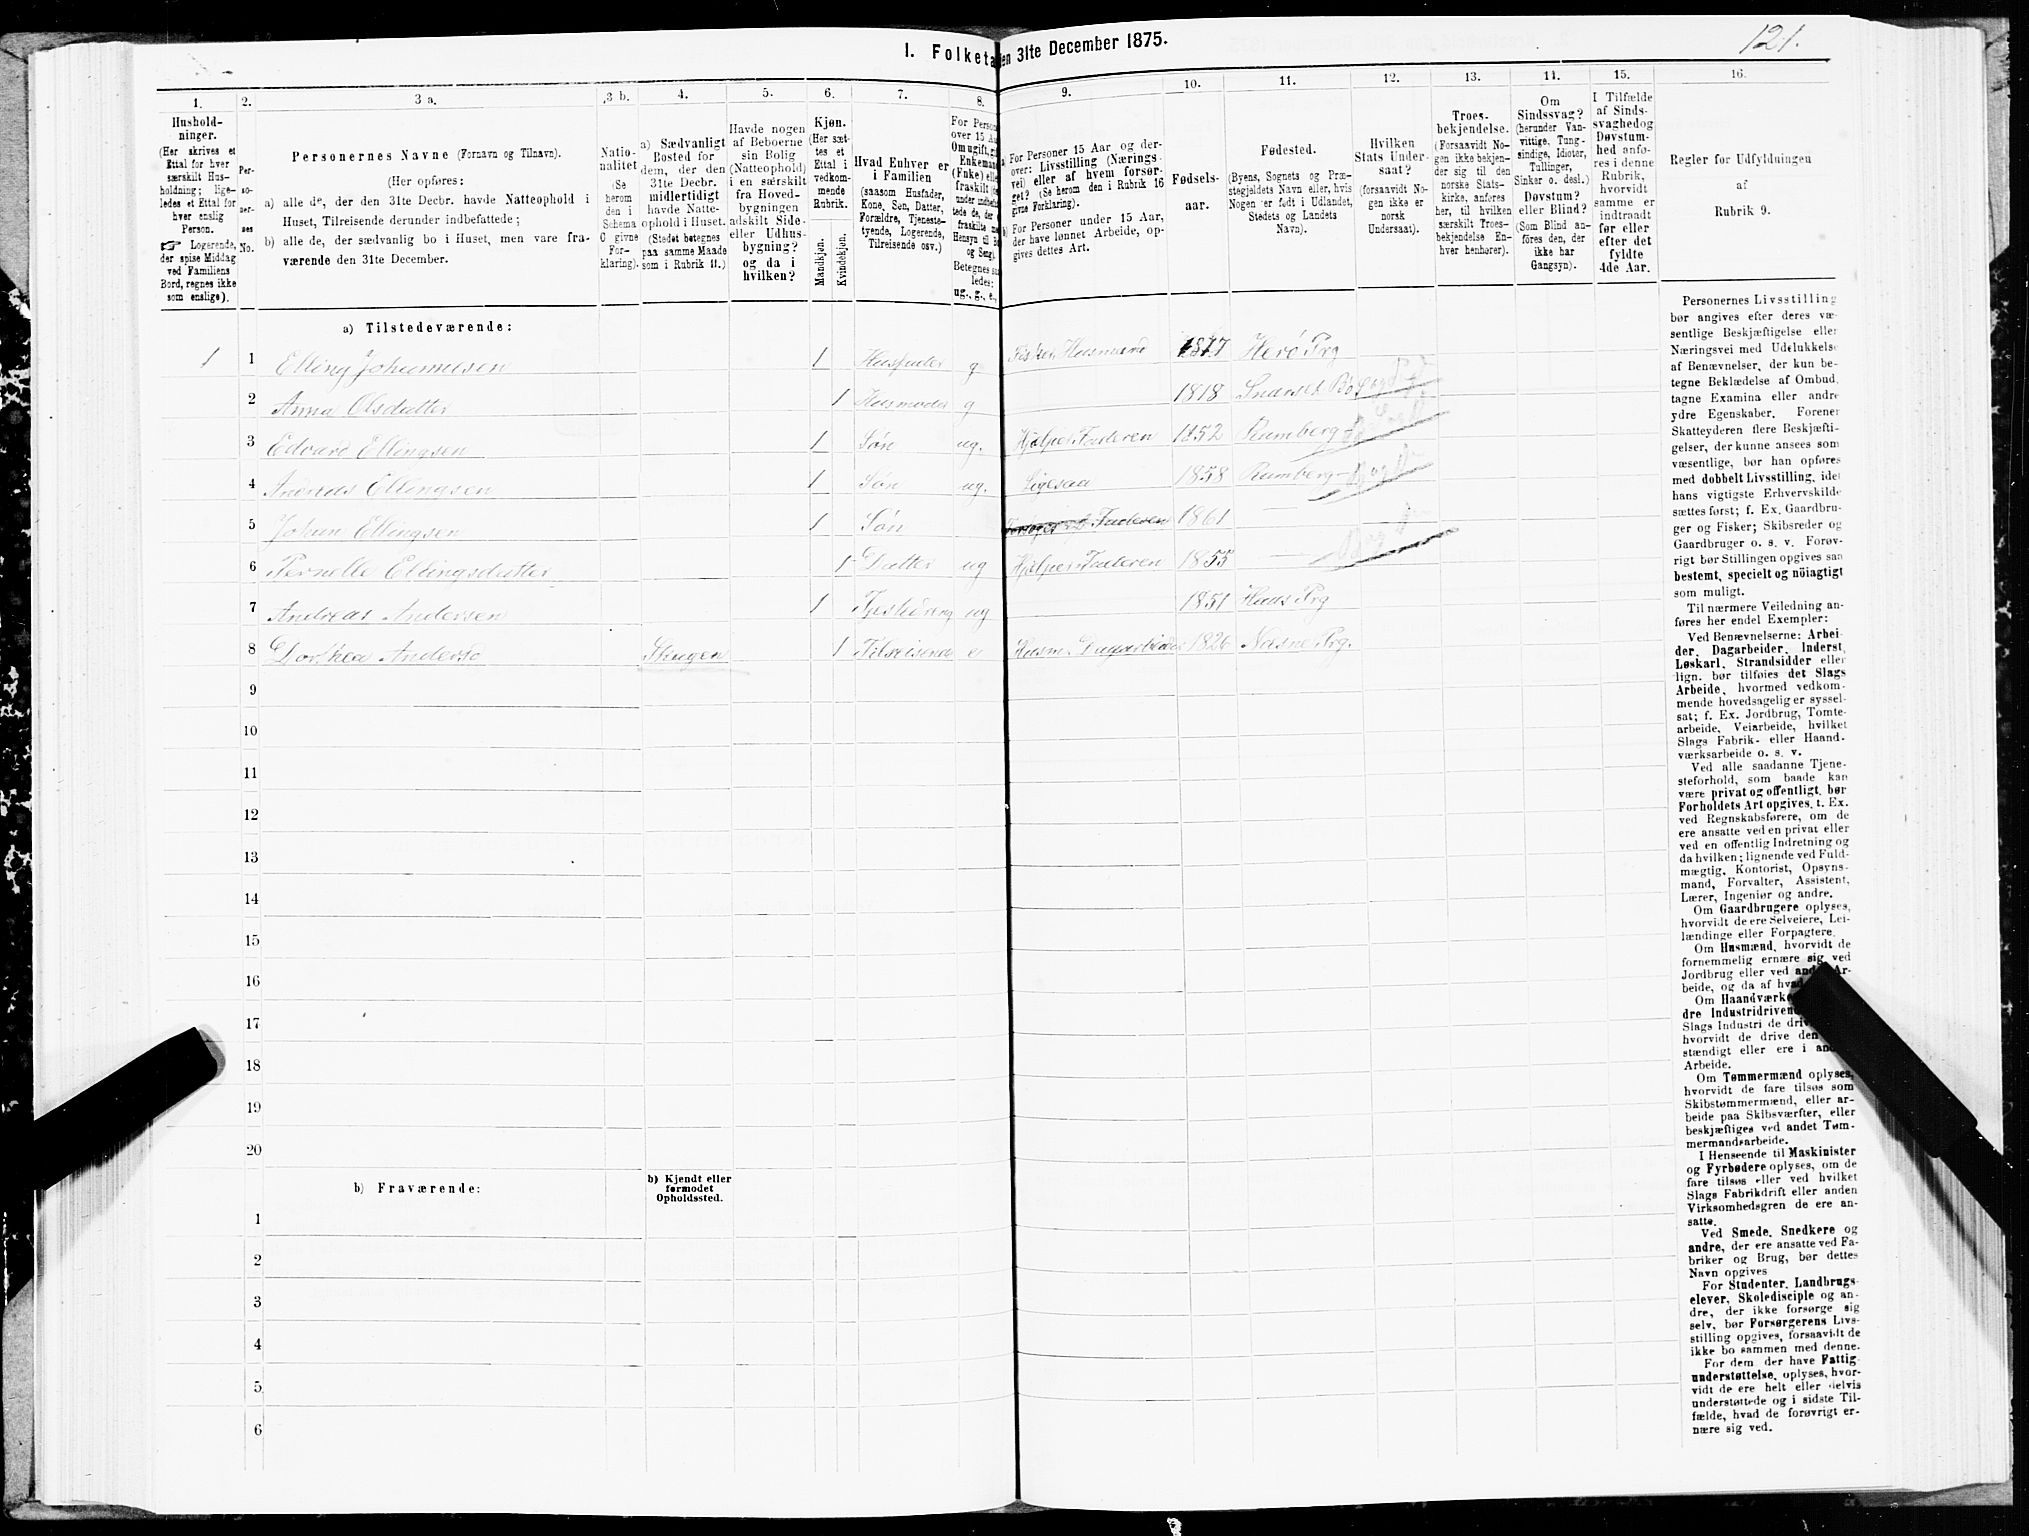 121.
I. Folketæ en 31te December 1875.
1. 2. 3 a. 3 b. 4. 5. 6. 7. 8. 9. 10. 11. 12. 13. 14. 15. 16.
Hushold-
ninger.
(Her skrives et
Ettal for hver
særskilt Hus-
holdning; lige-
ledes et Ettal for
hver enslig
Person.
☞ Logerende,
der spise Middag
ved Familiens
Bord, regnes ikke
som enslige).
Per-
so-
ner-
nes
No.
Personernes Navne (Fornavn og Tilnavn).
(Her opføres:
a) alle de, der den 31te Decbr. havde Natteophold i
Huset, Tilreisende derunder indbefattede;
b) alle de, der sædvanlig bo i Huset, men vare fra-
værende den 31te December.
Natio-
nalitet
(Se
herom
den i
Schema
C givne
For-
klaring).
a) Sædvanligt
Bosted for
dem, der den
31te Decbr.
midlertidigt
havde Natte-
ophold i Huset.
(Stedet betegnes
paa samme Maade
som i Rubrik 11.)
Havde nogen
af Beboerne
sin Bolig
(Natteophold)
i en særskilt
fra Hoved-
bygningen
adskilt Side-
eller Udhus-
bygning?
og da i
hvilken?
Kjøn.
(Her sæt-
tes et
Ettal i
vedkom-
mende
Rubrik.
Mandkjøn.
Kvindekjøn.
Hvad Enhver er
i Familien
(saasom Husfader,
Kone, Søn, Datter,
Forældre, Tjeneste-
tyende, Logerende,
Tilreisende osv.)
For Person
over 15 Aa
Om ugift, gi
Enkemand
(Enke) elle
fraskilt
under indbefat
tede de, der
fraskilte m
Hensyn til B
og Seng).
Betegnes saa
ledes:
ug., g., e.,
a) For Personer 15 Aar og der-
over: Livsstilling (Nærings-
vei) eller af hvem forsør-
get? (Se herom den i Rubrik 16
givne Forklaring).
b) For Personer under 15 Aar,
der have lønnet Arbeide, op-
gives dettes Art.
Fødsels-
aar.
Fødested.
(Byens, Sognets og Præ-
stegjeldets Navn eller, hvis
Nogen er født i Udlandet,
Stedets og Landets
Navn).
Hvilken
Stats Under-
saat?
(forsaavidt No-
gen ikke er
norsk
Undersaat).
Troes-
bekjendelse.
(Forsaavidt No-
gen ikke bekjen-
der sig til den
norske Stats-
kirke, anføres
her, til hvilken
særskilt Troes-
bekjendelse En-
hver henhører).
Om
Sindssvag?
(herunder Van-
vittige, Tung-
sindige, Idioter,
Tullinger,
Sinker o. desl.)
Døvstum?
eller Blind?
(Som Blind an-
føres den, der
ikke har
Gangsyn).
I Tilfælde
af Sinds-
svaghed og
Døvstum-
hed anfø-
res i denne
Rubrik,
hvorvidt
samme er
indtraadt
før eller
efter det
fyldte
4de Aar.
Regler for Udfyldningen
af
Rubrik 9.
a) Tilstedeværende:
1 1 Elling Johannesen 1 Husfader g Fisker Husmand 1817 Herø Prg
2 Anna Olsdatter 1 Husmoder g 1818
3 Edvard Ellingsen 1 Søn ug. Hjælper Faderen 1852 Rumberg
4 Andreas Ellingsen 1 Søn ug. Ligesaa 1858 Rumberg
5 Johan Ellingsen 1 Søn Faderen 1861 —
6 Pernelle Ellingsdatter 1 Datter ug Hjælper Faderen 1855 —
7 Andreas Andersen 1 ug 1851 Prg
8 Dorthea Anders 1 Tilreisende e Husm. Dagarbeider 1826 Næsne Prg.
9
10
11
12
13
14
15
16
17
18
19
20
b) Fraværende:
b) Kjendt eller
formodet
Opholdssted.
1
2
3
4
5
6
Personernes Livsstilling
bør angives efter deres væ-
sentlige Beskjæftigelse eller
Næringsvei med Udelukkelse
af Benævnelser, der kun be-
tegne Beklædelse af Ombud,
tagne Examina eller andre
ydre Egenskaber. Forener
Skatteyderen flere Beskjæfti-
gelser, der kunne ansees som
væsentlige, bør han opføres
med dobbelt Livsstilling, idet
hans vigtigste Erhvervskilde
sættes først; f. Ex. Gaardbru-
ger og Fisker; Skibsreder og
Gaardbruger o. s. v. Forøv-
rigt bør Stillingen opgives saa
bestemt, specielt og nöiagtigt
som muligt.
Til nærmere Veiledning an-
føres her endel Exempler:
Ved Benævnelserne: Arbei-
der, Dagarbeider, Inderst,
Løskarl, Strandsidder eller
lign. bør tilføies det Slags
Arbeide, hvormed vedkom-
mende hovedsagelig er syssel-
sat; f. Ex. Jordbrug, Tomte-
arbeide, Veiarbeide, hvilket
Slags Fabrik- eller Haand-
værksarbeide o. s. v.
Ved alle saadanne Tjene-
steforhold, som baade kan
være privat og offentligt, bør
Forholdets Art opgives, t. Ex.
ved Regnskabsførere, om de
ere ansatte ved en privat eller
ved en offentlig Indretning og
da hvilken; lignende ved Fuld-
mægtig, Kontorist, Opsyns-
mand, Forvalter, Assistent,
Lærer, Ingeniør og andre.
Om Gaardbrugere oplyses,
hvorvidt de ere Selveiere, Lei-
lændinge eller Forpagtere.
Om Husmænd, hvorvidt de
fornemmelig ernære sig ved
Jordbrug eller ved and Ar-
beide, og da af hvad
Om Haandværke
dre Industridriven
Slags Industri de driv
hvorvidt de drive den
stændigt eller ere i and
Arbeide.
Om Tømmermænd oplyses,
hvorvidt de fare tilsøs som
Skibstømmermænd, eller ar-
beide paa Skibsværfter, eller
beskjæftiges ved andet Tøm-
mermandsarbeide.
I Henseende til Maskinister
og Fyrbødere oplyses, om de
fare tilsøs eller ved hvilket
Slags Fabrikdrift eller anden
Virksomhedsgren de ere an-
satte.
Ved Smede, Snedkere og
andre, der ere ansatte ved Fa-
briker og Brug, bør dettes
Navn opgives
For Studenter, Landbrugs-
elever, Skoledisciple og an-
dre, der ikke forsørge sig
selv, bør Forsørgerens Livs-
stilling opgives, forsaavidt de
ikke bo sammen med denne.
For dem der have Fattig-
understøttelse, oplyses, hvor-
vidt de ere helt eller delvis
understøttede og i sidste Til-
fælde, hvad de forøvrigt er-
nære sig ved.